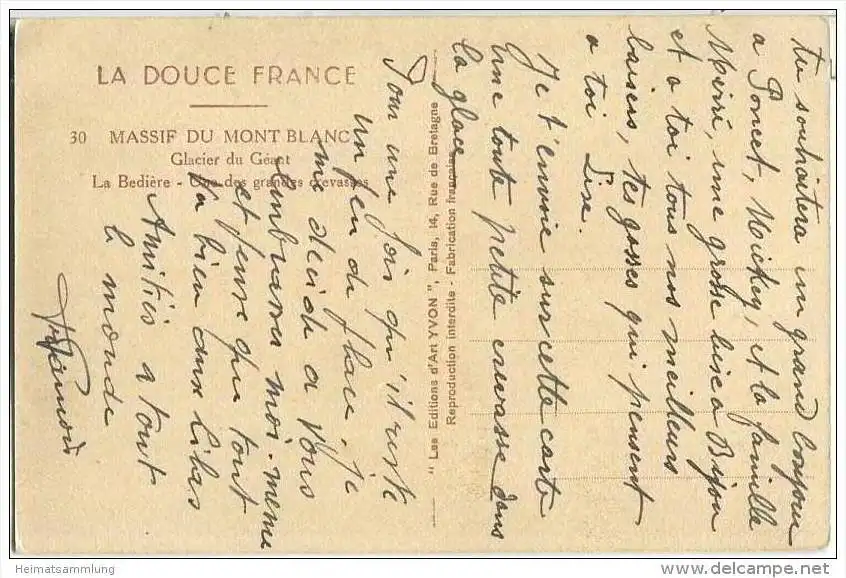 LA DOUCE FRANCE
30 MASSIF DU MONT BLANC
Glacier du Géant
La Bedière - Une des grandes crevasses
" Les Editions d'Art YVON ", Paris, 14, Rue de Bretagne
Reproduction interdite - Fabrication française
tu souhaitera un grand bonjour
a Poncet, Mickey, et la famille
Mirri, une grosse bise a Bijou
et a toi tous nos meilleurs
baisers, tes gosses qui pensent
a toi Lise.
Je t'envoie sur cette carte
une toute petite crevasse dans
la glace
Pour une fois qu'il reste
un peu de place. Je
me decide a vous
embrasser moi-meme
et pense que tout
va bien aux Lilas
Amitiés a tout
le monde
Heimatsammlung
www.delcampe.net